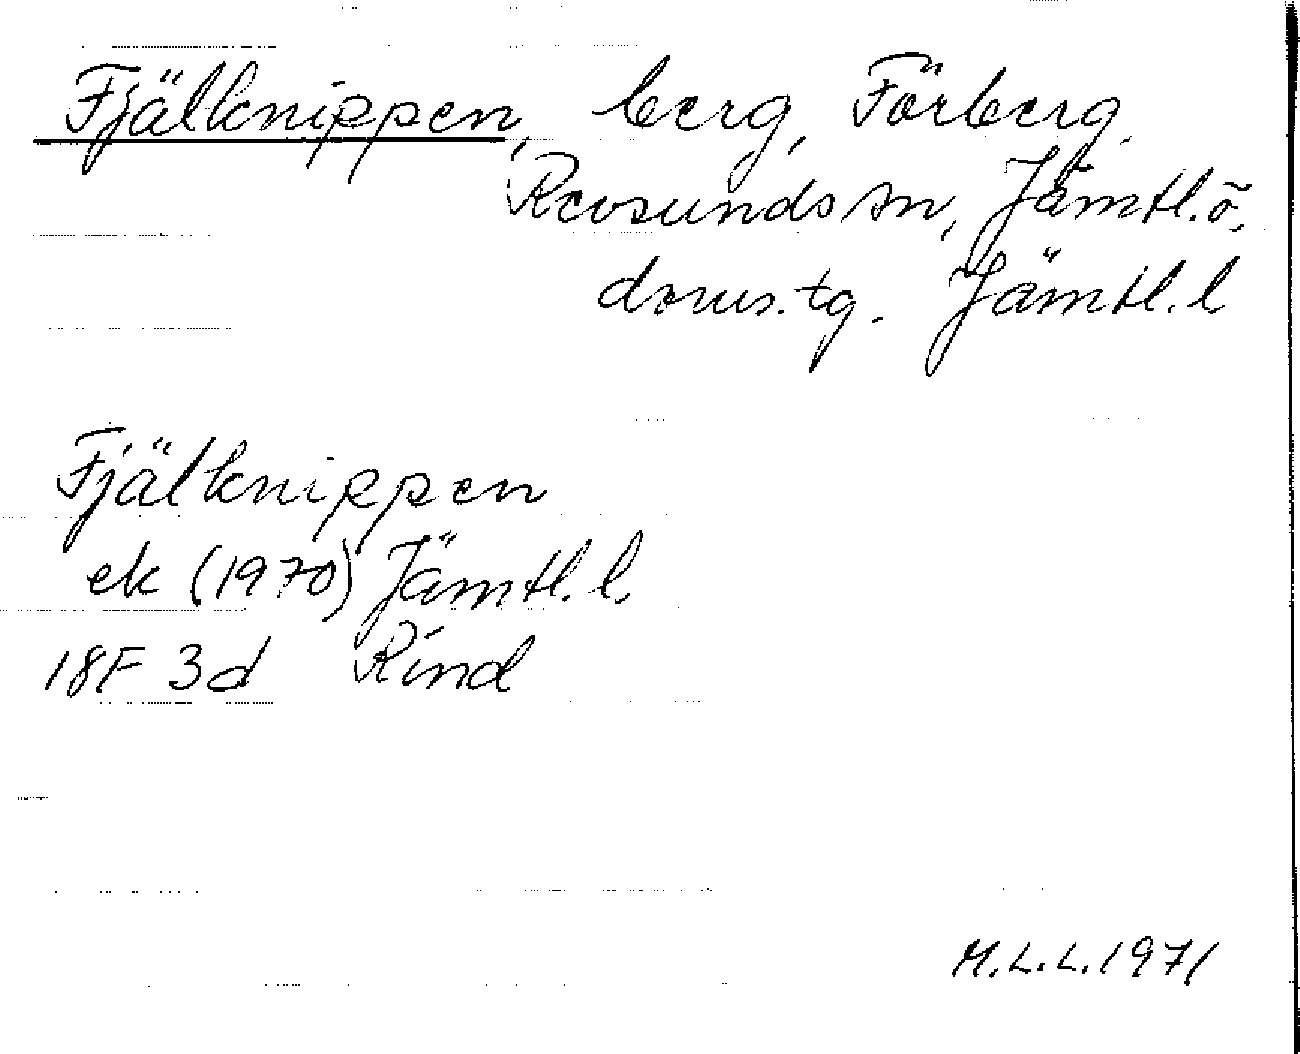 Fjälknippen, berg, Förberg,
Revsunds sn, Jämtl. ö.
doms. tg. Jämtl. l
Fjälknippen
ek (1970) Jämtl. l.
18F 3d Rind
M.L.L. 1971